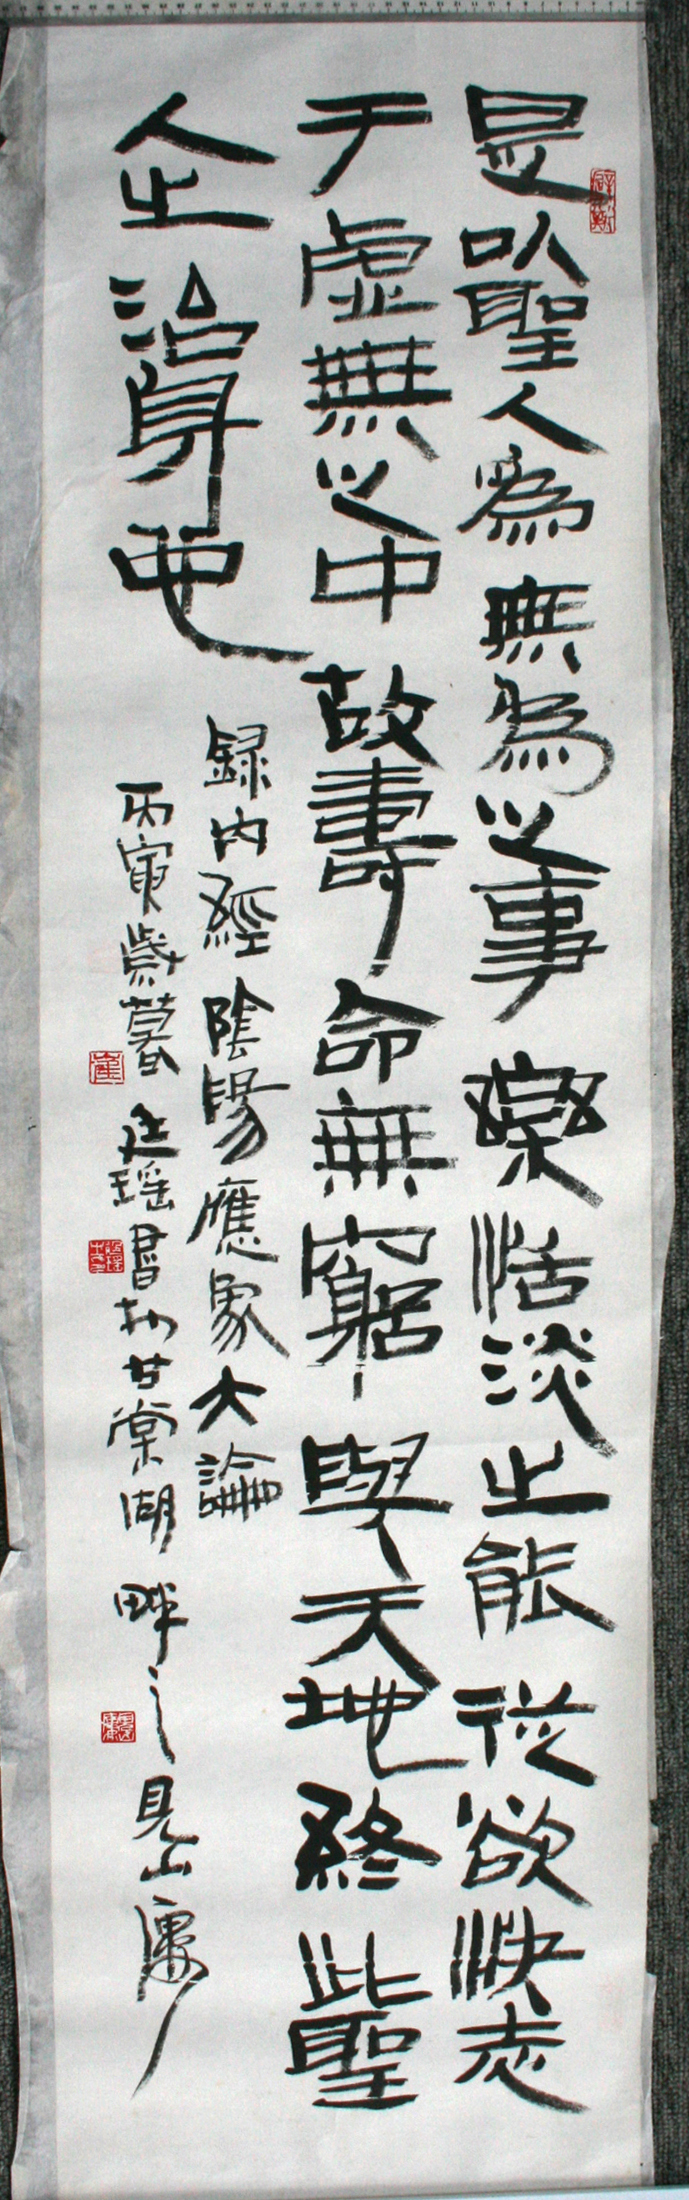 是以聖人為無為之事樂恬淡之能從欲快志
于虛無之中故壽命無窮與天地終此聖
人之治身也
録内經陰陽應象大論
丙寅歲暮廷瑶書於甘棠湖畔之見山廔